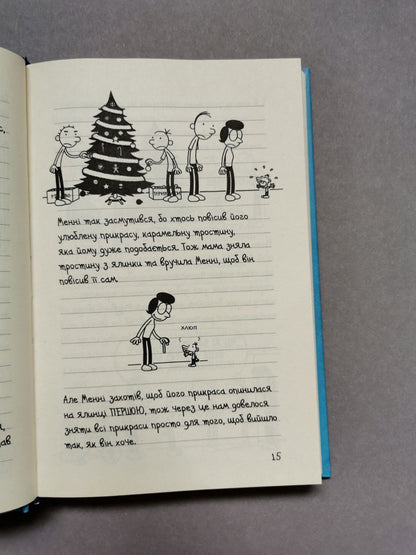 Менні так засмутився, бо хтось повісив його
улюблену прикрасу, карамельну тростину,
яка йому дуже подобається. Тож мама зняла
тростину з ялинки та вручила Менні, щоб він
повісив її сам.
ХЛЮП
Але Менні захотів, щоб його прикраса опинилася
на ялинці ПЕРШОЮ, тож через це нам довелося
зняти всі прикраси просто для того, щоб вийшло
так, як він хоче.
15